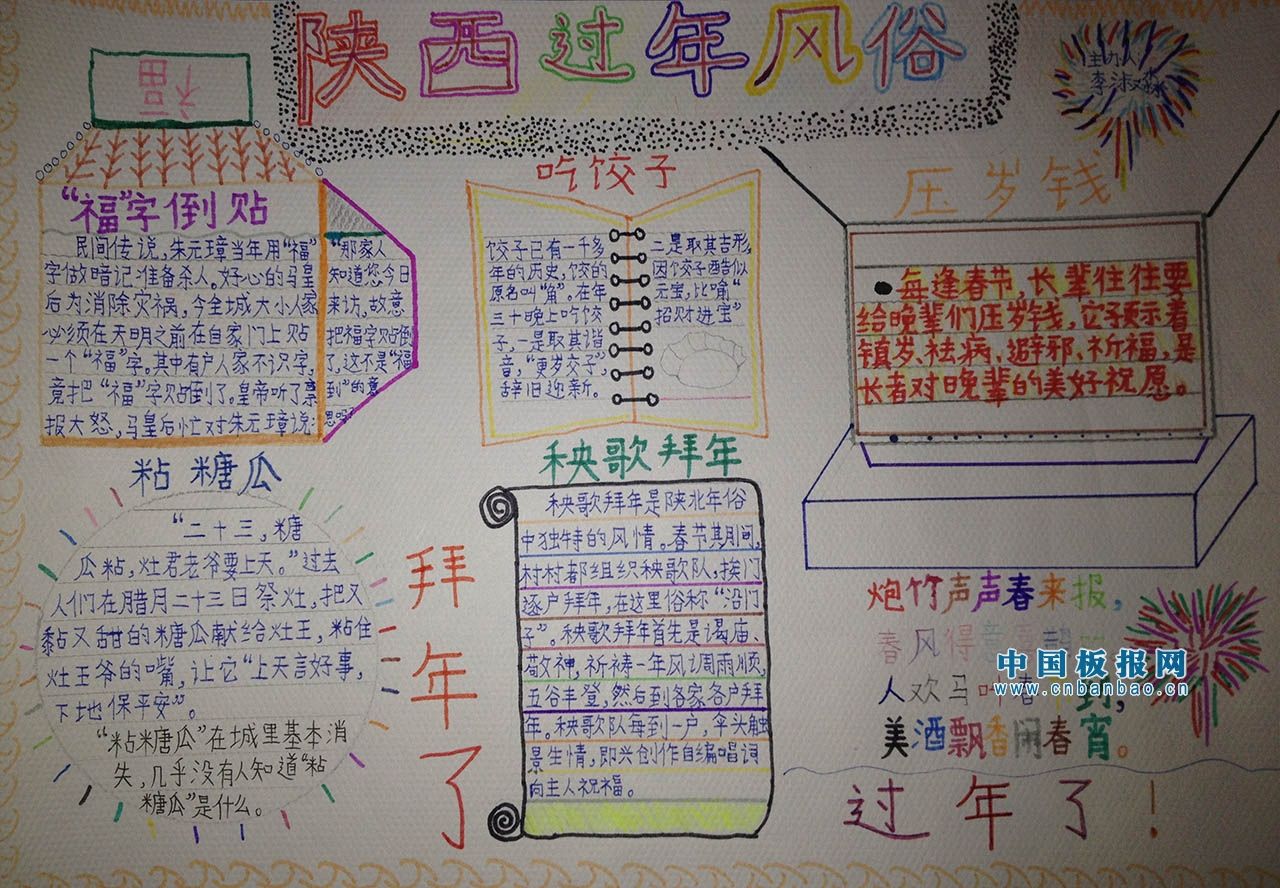 陕西过年风俗
主办人
李淑淼
福
“福”字倒贴
民间传说，朱元璋当年用“福”
字做暗记准备杀人。好心的马皇
后为消除灾祸，今全城大小人家
必须在天明之前在自家门上贴
一个“福”字。其中有户人家不识字，
竟把“福”字贴倒了。皇帝听了禀
报大怒，马皇后忙对朱元璋说：
“那家人
知道您今日
来访，故意
把福字贴倒
了，这不是“福
到”的意
思吗？
吃饺子
饺子已有一千多
年的历史，饺的
原名叫“角”。在年
三十晚上吃饺
子，一是取其谐
音，“更岁交子”，
辞旧迎新。
二是取其吉形，
因饺子酷似
元宝，比喻“
招财进宝”
压岁钱
每逢春节，长辈往往要
给晚辈们压岁钱，它预示着
镇岁、祛病、避邪、祈福，是
长者对晚辈的美好祝愿。
粘糖瓜
“二十三，糖
瓜粘，灶君老爷要上天。”过去
人们在腊月二十三日祭灶，把又
黏又甜的糖瓜献给灶王，粘住
灶王爷的嘴，让它“上天言好事，
下地保平安”。
“粘糖瓜”在城里基本消
失，几乎没有人知道“粘
糖瓜”是什么。
拜年了
秧歌拜年
秧歌拜年是陕北年俗
中独特的风情。春节其月间，
村村都组织秧歌队，挨门
逐户拜年，在这里俗称“沿门
子”。秧歌拜年首先是谒庙、
敬神，祈祷一年风调雨顺，
五谷丰登，然后到各家各户拜
年。秧歌队每到一户，伞头触
景生情，即兴创作自编唱词
向主人祝福。
炮竹声声春来报，
春风得意
人欢马叫春节到，
美酒飘香闹春宵。
过年了！
中国板报网
www.cnbanbao.cn